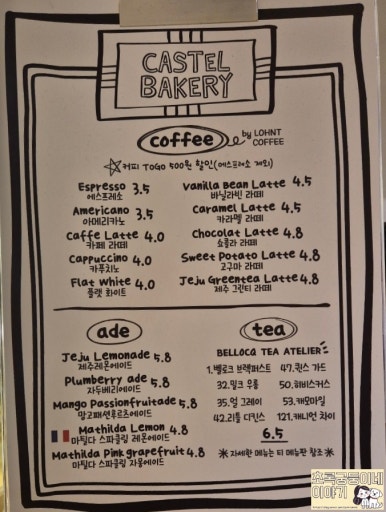 CASTEL
BAKERY
coffee
by LOHNT
COFFEE
커피 TOGO 500원 할인(에스프레소 제외)
Espresso 3.5
에스프레소
Americano 3.5
아메리카노
Caffe Latte 4.0
카페 라떼
Cappuccino 4.0
카푸치노
Flat White 4.0
플랫 화이트
Vanilla Bean Latte 4.5
바닐라빈 라떼
Caramel Latte 4.5
카라멜 라떼
Chocolat Latte 4.8
쇼콜라 라떼
Sweet Potato Latte 4.8
고구마 라떼
Jeju Greentea Latte 4.8
제주 그린티 라떼
ade
Jeju Lemonade 5.8
제주레몬에이드
Plumberry ade 5.8
자두베리에이드
Mango Passionfruitade 5.8
망고패션후르츠에이드
Mathilda Lemon 4.8
마틸다 스파클링 레몬에이드
Mathilda Pink grapefruit 4.8
마틸다 스파클링 자몽에이드
tea
BELLOCQ TEA ATELIER
1.벨로크 브렉퍼스트 47.퀸스 가드
32.밀크 우롱 50.히비스커스
35.얼 그레이 53.캐모마일
42.리틀 디킨스 121.캐니언 차이
6.5
※자세한 메뉴는 티 메뉴판 참조※
초록궁둥이네
이야기